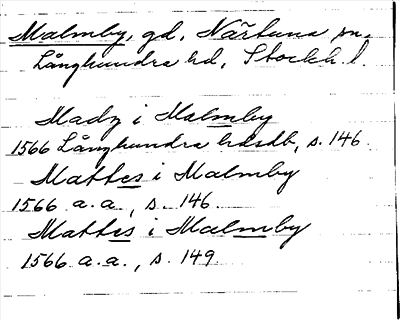 Malmby, gd, Närtuna sn,
Långhundra hd, Stockh. l.
Madz i Malmby
1566 Långhundra hdsdb, s. 146.
Mattes i Malmby
1566 a.a., s. 146
Mattes i Malmby
1566 a.a., s. 149.